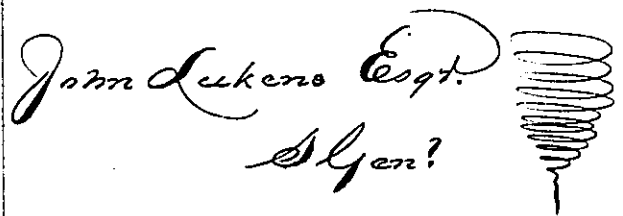 John Lukens Esqr.
S Gen?